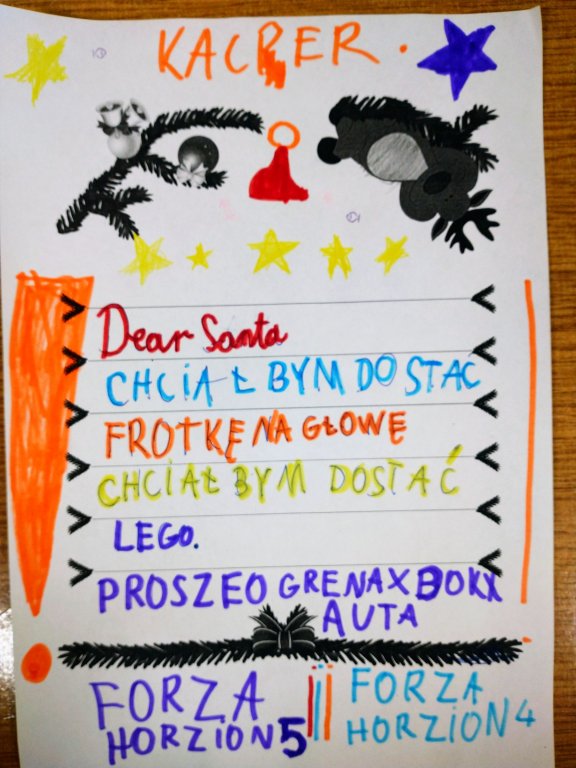 KACPER.
Dear Santa
CHCIAŁBYM DOSTAC
FROTKĘ NA GŁOWĘ
CHCIAŁBYM DOSTAĆ
LEGO.
PROSZEO GRENAXBOKX
AUTA
FORZA
HORZION 5
FORZA
HORZION 4